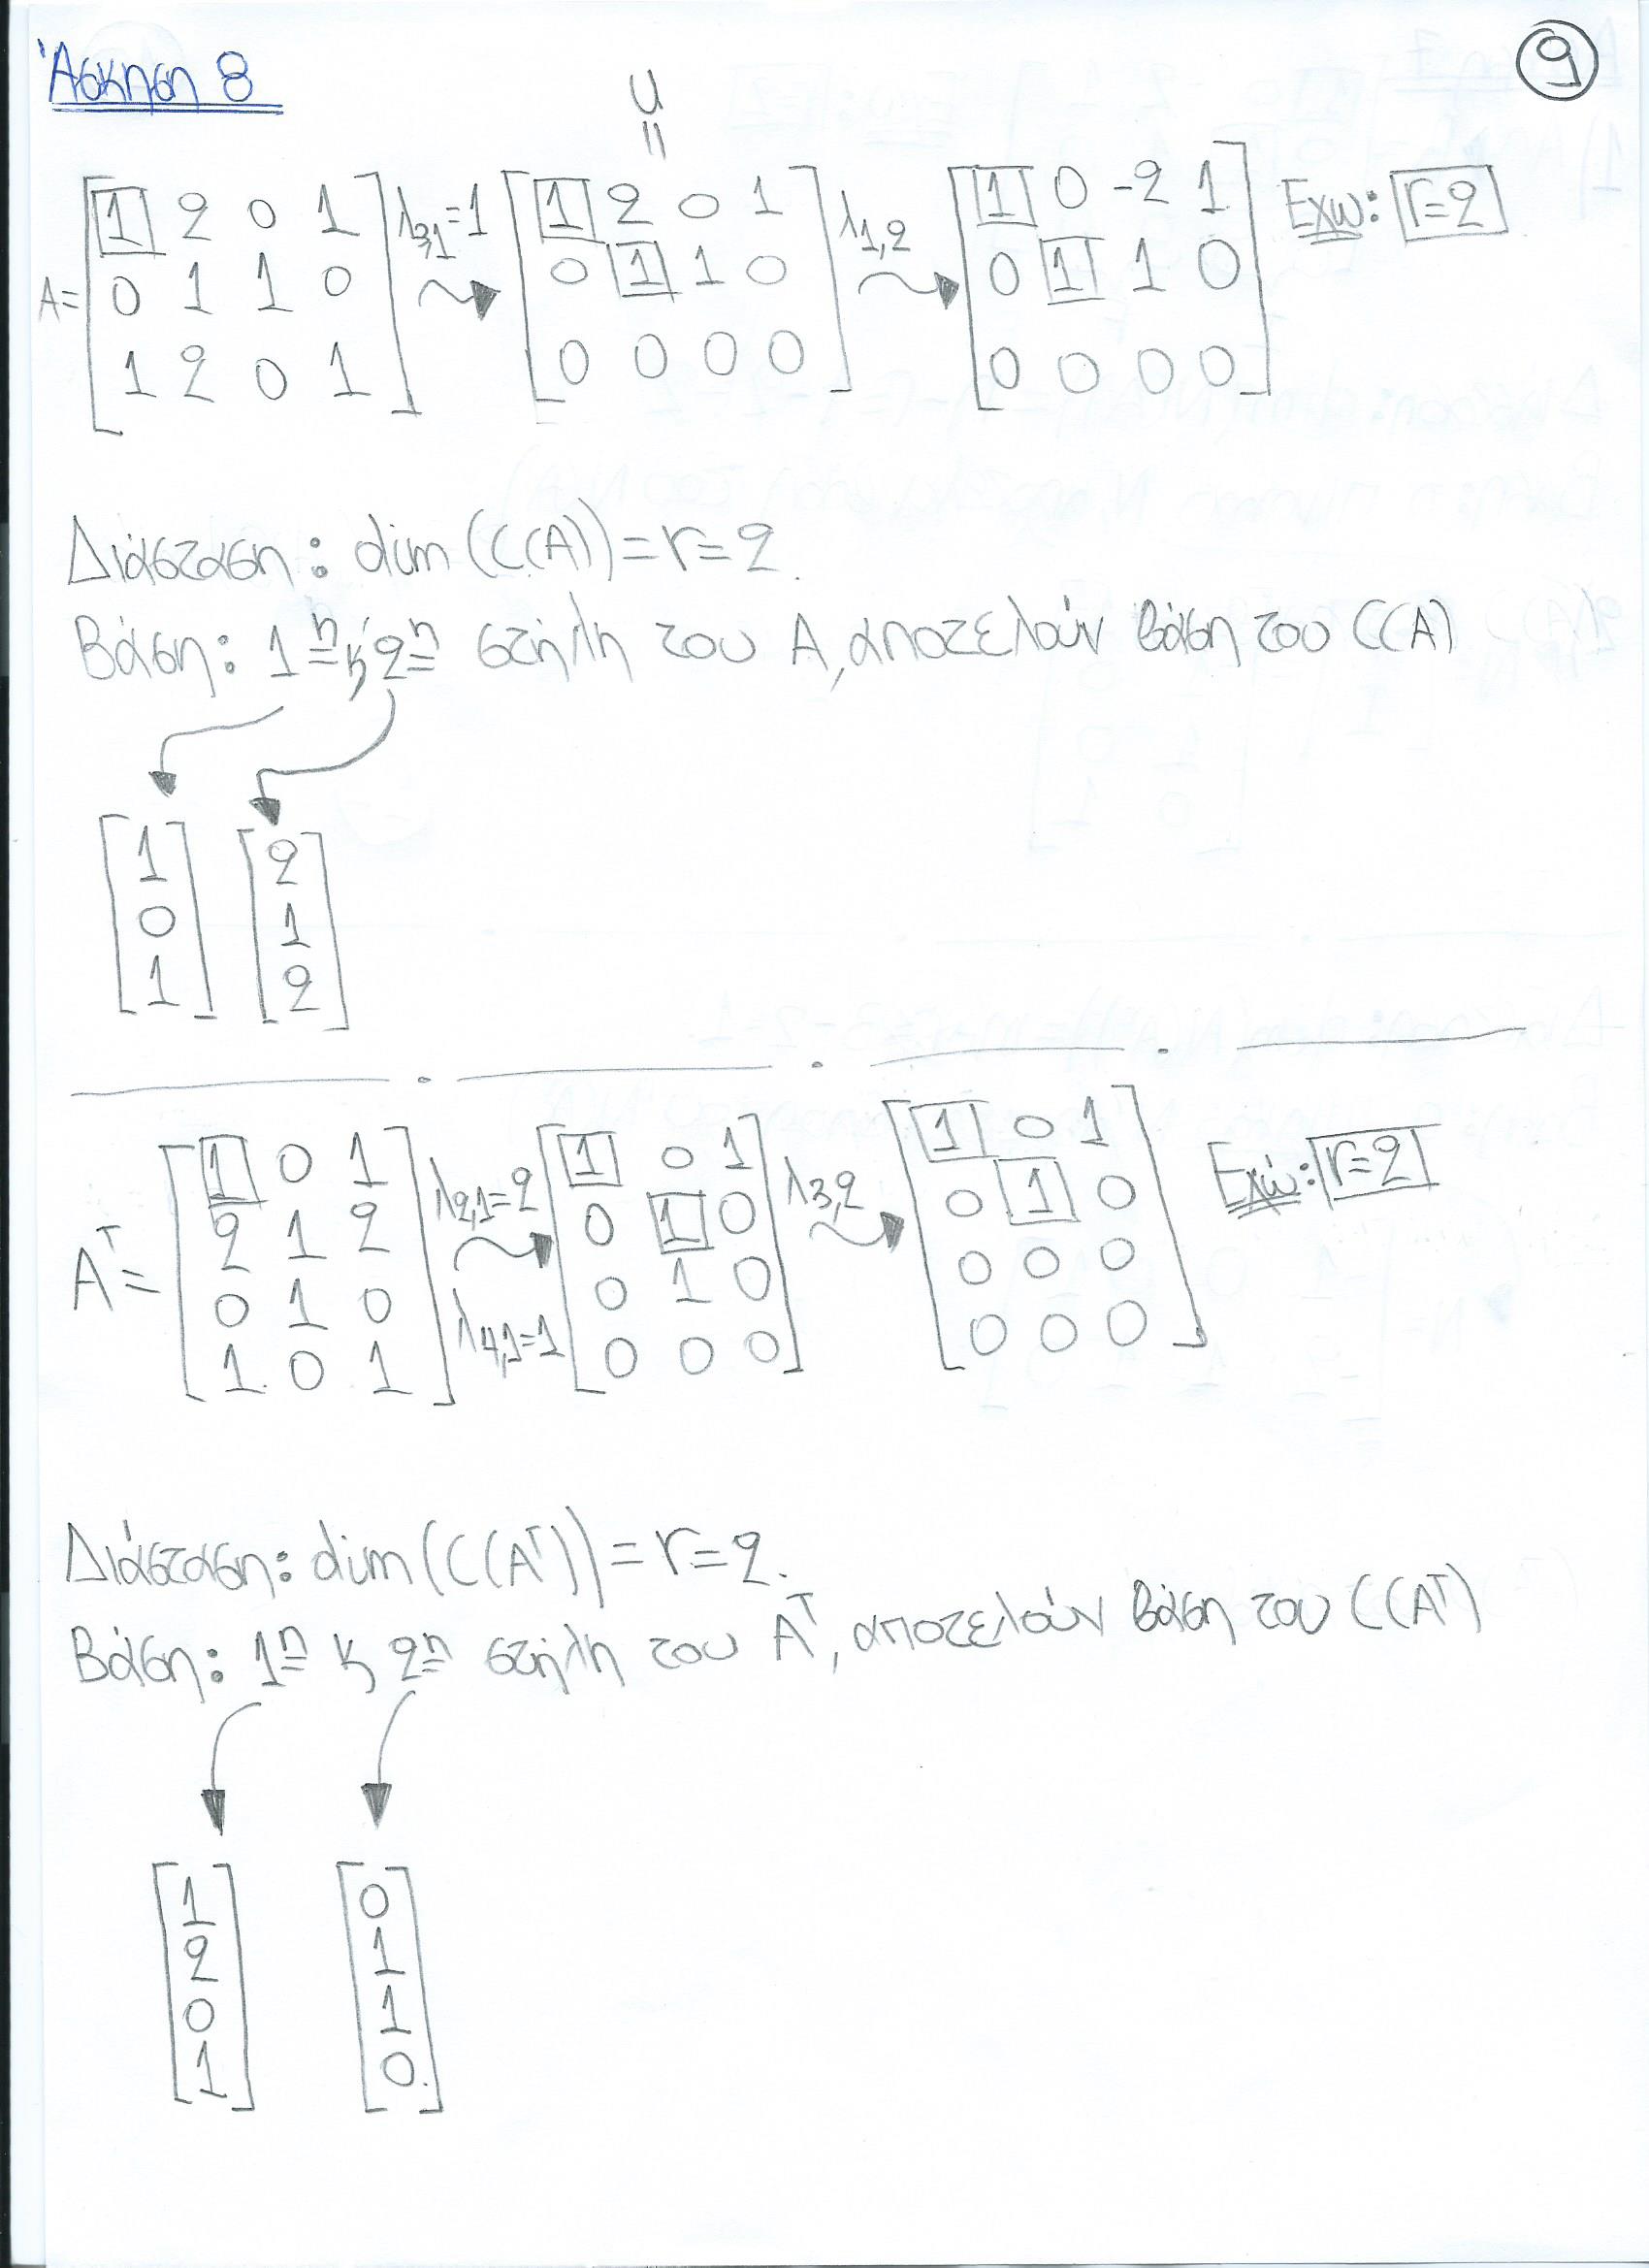 Άσκηση 8
9
U
=
A= [1 2 0 1; 0 1 1 0; 1 2 0 1] λ3,1=1 [1 2 0 1; 0 1 1 0; 0 0 0 0] λ1,2 [1 0 -2 1; 0 1 1 0; 0 0 0 0] Έχω: r=2
Διάσταση: dim(C(A))=r=2.
Βάση: 1η κ 2η στήλη του A, αποτελούν βάση του C(A)
[1; 0; 1] [2; 1; 2]
Aᵀ= [1 0 1; 2 1 2; 0 1 0; 1 0 1] λ2,1=2 λ4,1=1 [1 0 1; 0 1 0; 0 1 0; 0 0 0] λ3,2 [1 0 1; 0 1 0; 0 0 0; 0 0 0] Έχω: r=2
Διάσταση: dim(C(Aᵀ))=r=2.
Βάση: 1η κ 2η στήλη του Aᵀ, αποτελούν βάση του C(Aᵀ)
[1; 2; 0; 1] [0; 1; 1; 0]